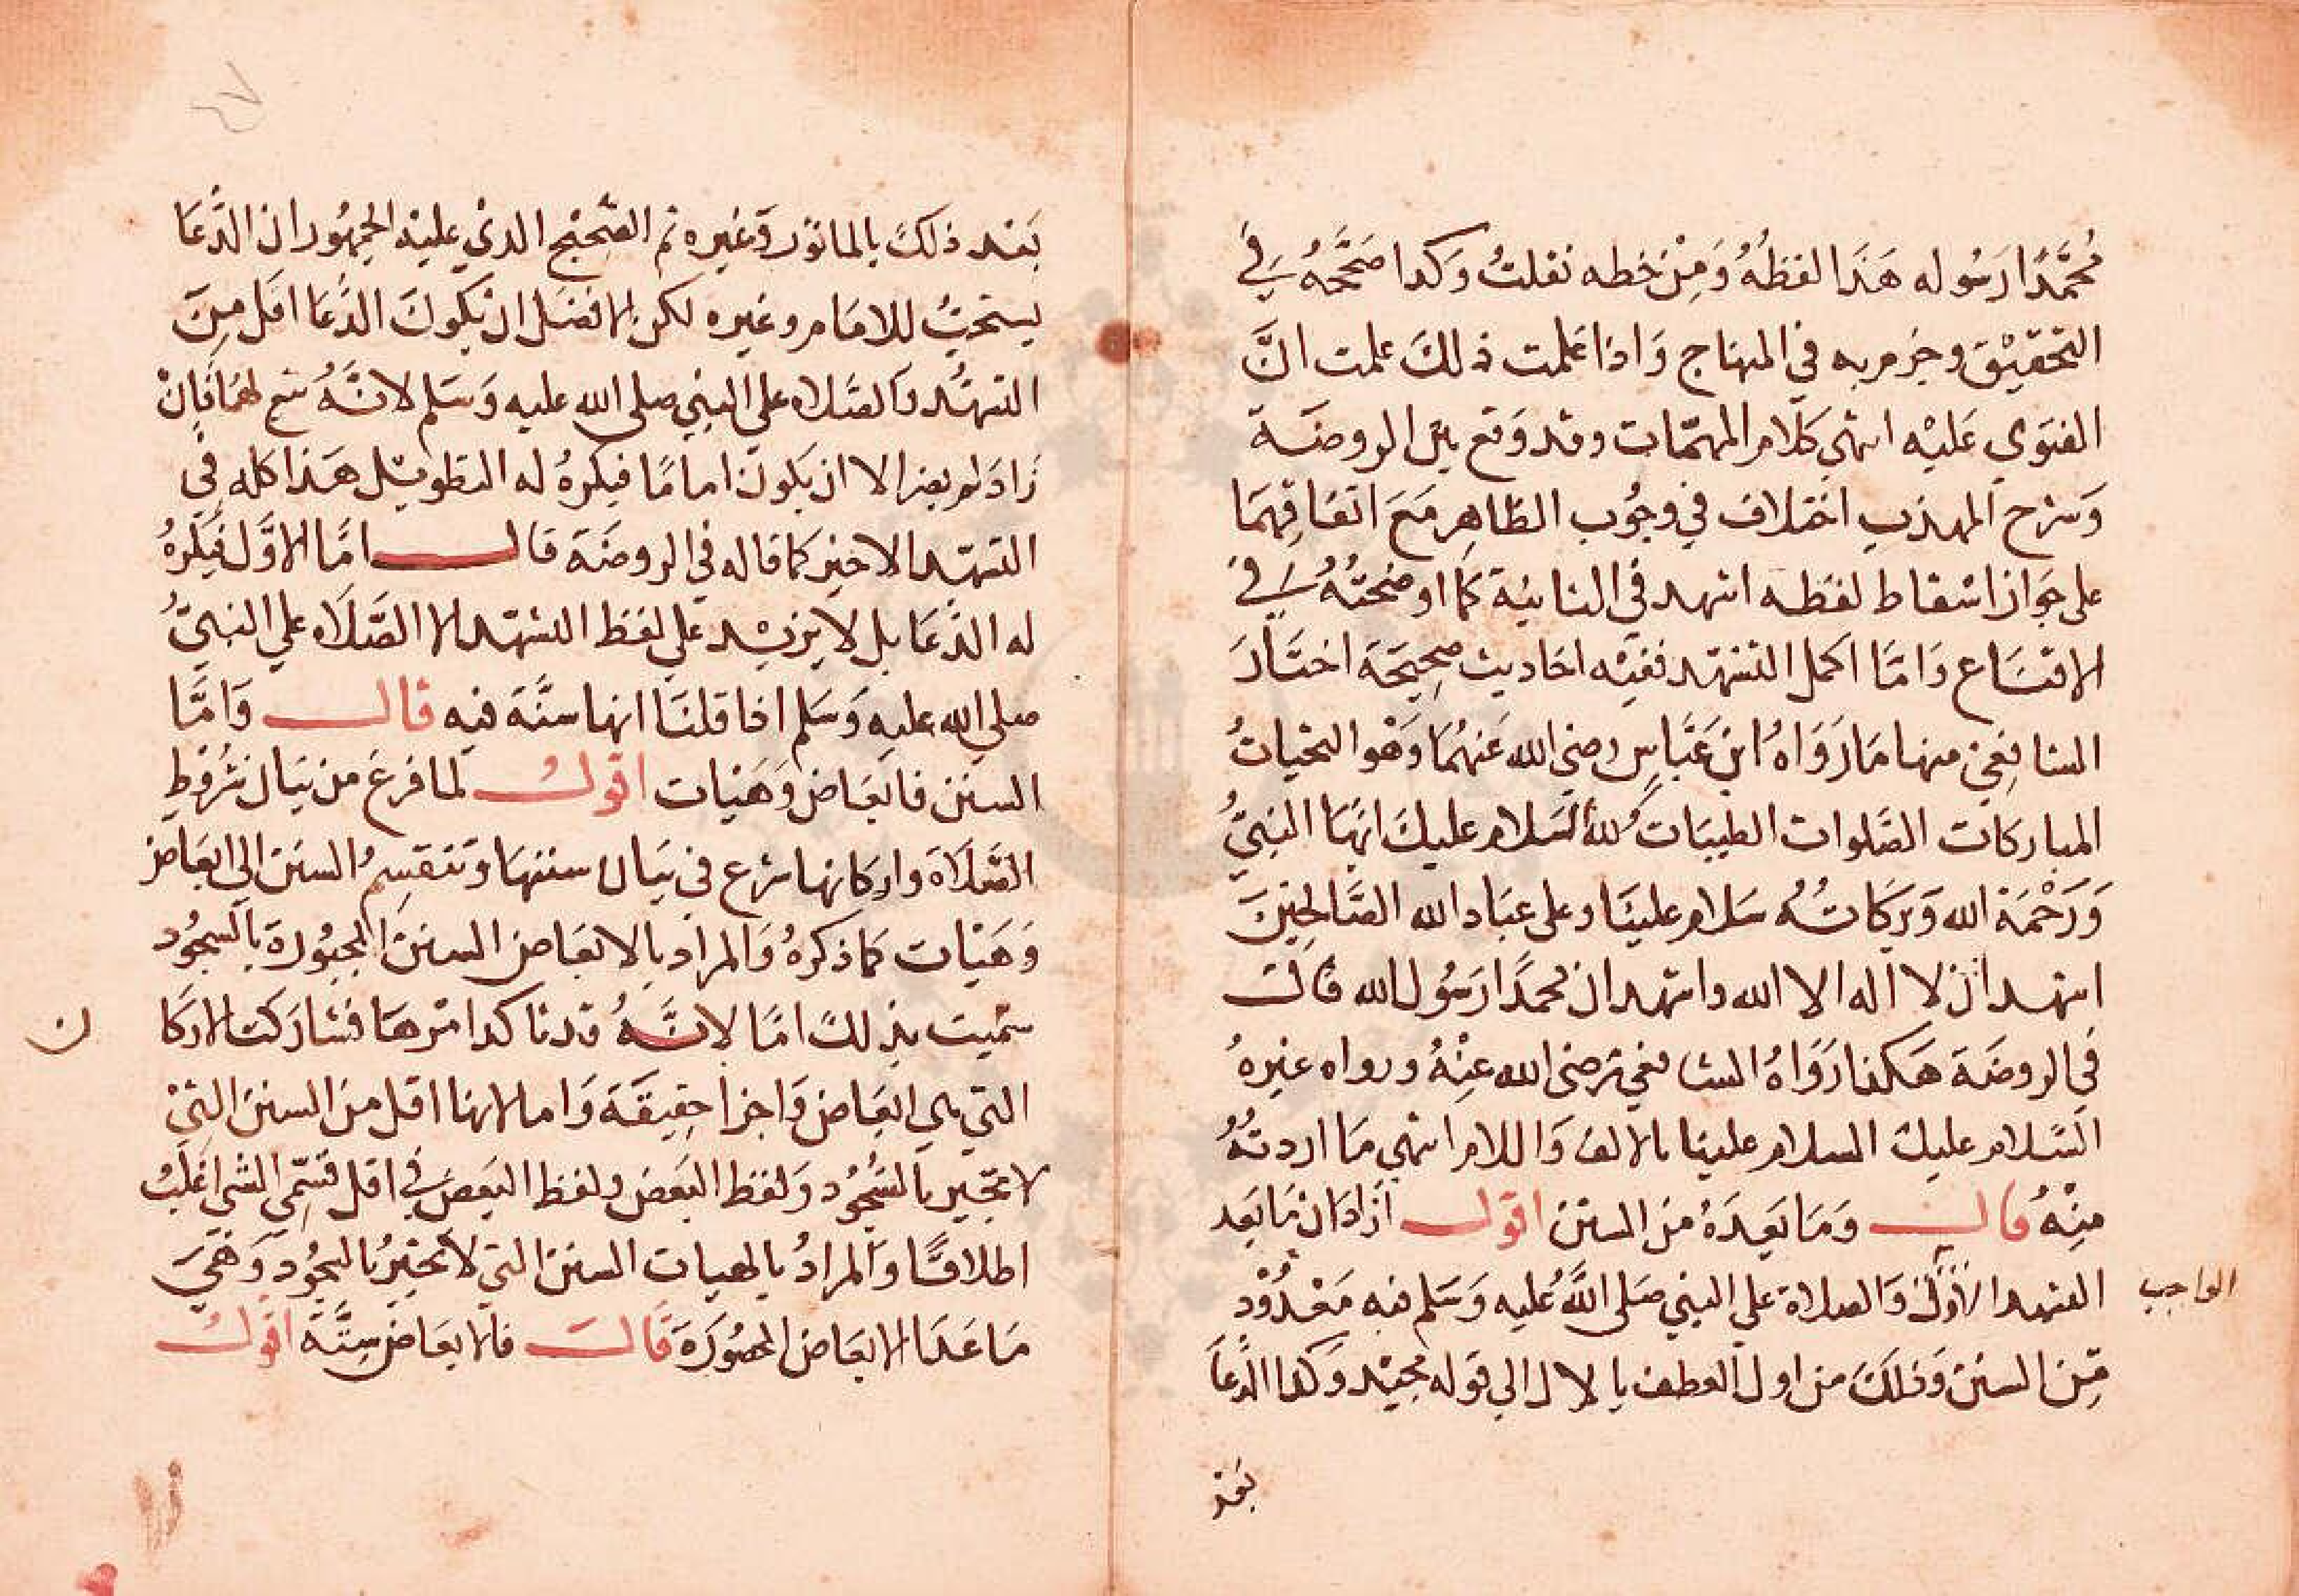 مُحَمَّدًا رَسُوله هَذَا لفظهُ وَمِنْ خطه نقلتُ وَكدا صَحَّحَهُ في
التحقيْق وجزم به في المنهاج وَاذا علمت ذلك علمت انَّ
الفتوَي عَليْه انتهي كلام المهمّات وقد وَقع بين الروضَة
وَشرح المهذب اختلاف في وجُوب الظاهِر مَعَ اتفاقهِمَا
على جَواز اسْقاط لفظه اشهد في الثانية كما اوضحتُهُ في
الاقتناع وَامَّا اكمل التشهّد ففيْه احَاديث صحِيحَة اختَارَ
الشافِعي منها مَا رَوَاهُ ابن عَبّاس رضي الله عَنهُمَا وَهْو التحيات
المباركات الصَّلوات الطيبَات لله السَلام عليك ايّهَا النبيُّ
وَرَحْمَة الله وَبَرَكاتُهُ سَلام علينَا وعلى عبَاد الله الصَّالِحِينَ
اشهد ان لا اله الا الله واشهد ان محمدًا رَسُول الله قالَ
في الروضَة هَكذا رَوَاهُ الشافعي رَضي الله عنْهُ ورواه غيرهُ
السَّلام عليك السلام علينا بالالف وَاللام انتهي مَا اردتهُ
منْهُ قال وَمَا بَعدَهُ منَ السنن اقول ارَادَ ان مَا بَعد
التشهد الاول وَالصلاة علي النبي صَلى اللهُ عليه وَسَلم فيه مَعْدُوْد
الواجب
مِّن السنن وَذلكَ من اول العطف بالال الي قوله مجيْد وَكذا الدُّعَا
بَعْد
بَعْد ذلكَ بالماثوْر وَغيره ثم الصَّحِيْح الدي عليْه الجمهُور ان الدُّعَا
يستحبُّ للامَام وغيره لكن الافضَل ان يَكونَ الدُّعَا اقل مِنَ
التشهُّد وَالصَّلاه علي النبي صلى الله عليه وَسَلم لانَّهُ تبع لهمَا فان
زادَ لم يضر الا ان يَكونَ امامًا فيكرهُ له التطويْل هَذا كله في
التشهّد الاخيْر كما قاله في الروضَة قال امَّا الاوَّل فيُكرهُ
له الدُّعَا بل لا يزيْد علي لفظ التشهّد الا الصَّلاه علي النبيّ
صلي الله عليه وَسَلم اذا قلنَا انها سنَّة فيه قال وَامَّا
السنن فابعَاض وَهَيات اقول لما فرغ من بَيان شرُوط
الصَّلاَة واركانها شرع في بَيان سننهَا وَتنقسِمُ السنن الي ابعَاض
وَهَيْات كما ذكرهُ وَالمراد بالابعَاض السنن المجبُورة بالسجُود
سُمّيت بذلك امَّا لانّهُ قد تاكد امْرهَا فشارَكت الاركا
ن
التي هي ابعَاض وَاجزا حقِيقَة وَاما لانها اقل من السنن التيْ
لا تجبر بالسُّجُود وَلفظ البَعض ولفظ البَعض في اقل قسمي الشي اغلبُ
اطلاقًا وَالمرادُ بالهيات السنن التي لا تجبرُ بالسجُود وَهيَ
مَا عَدَا الابعَاض المحصُورَة قال فالابعَاض سِتَّة اقول